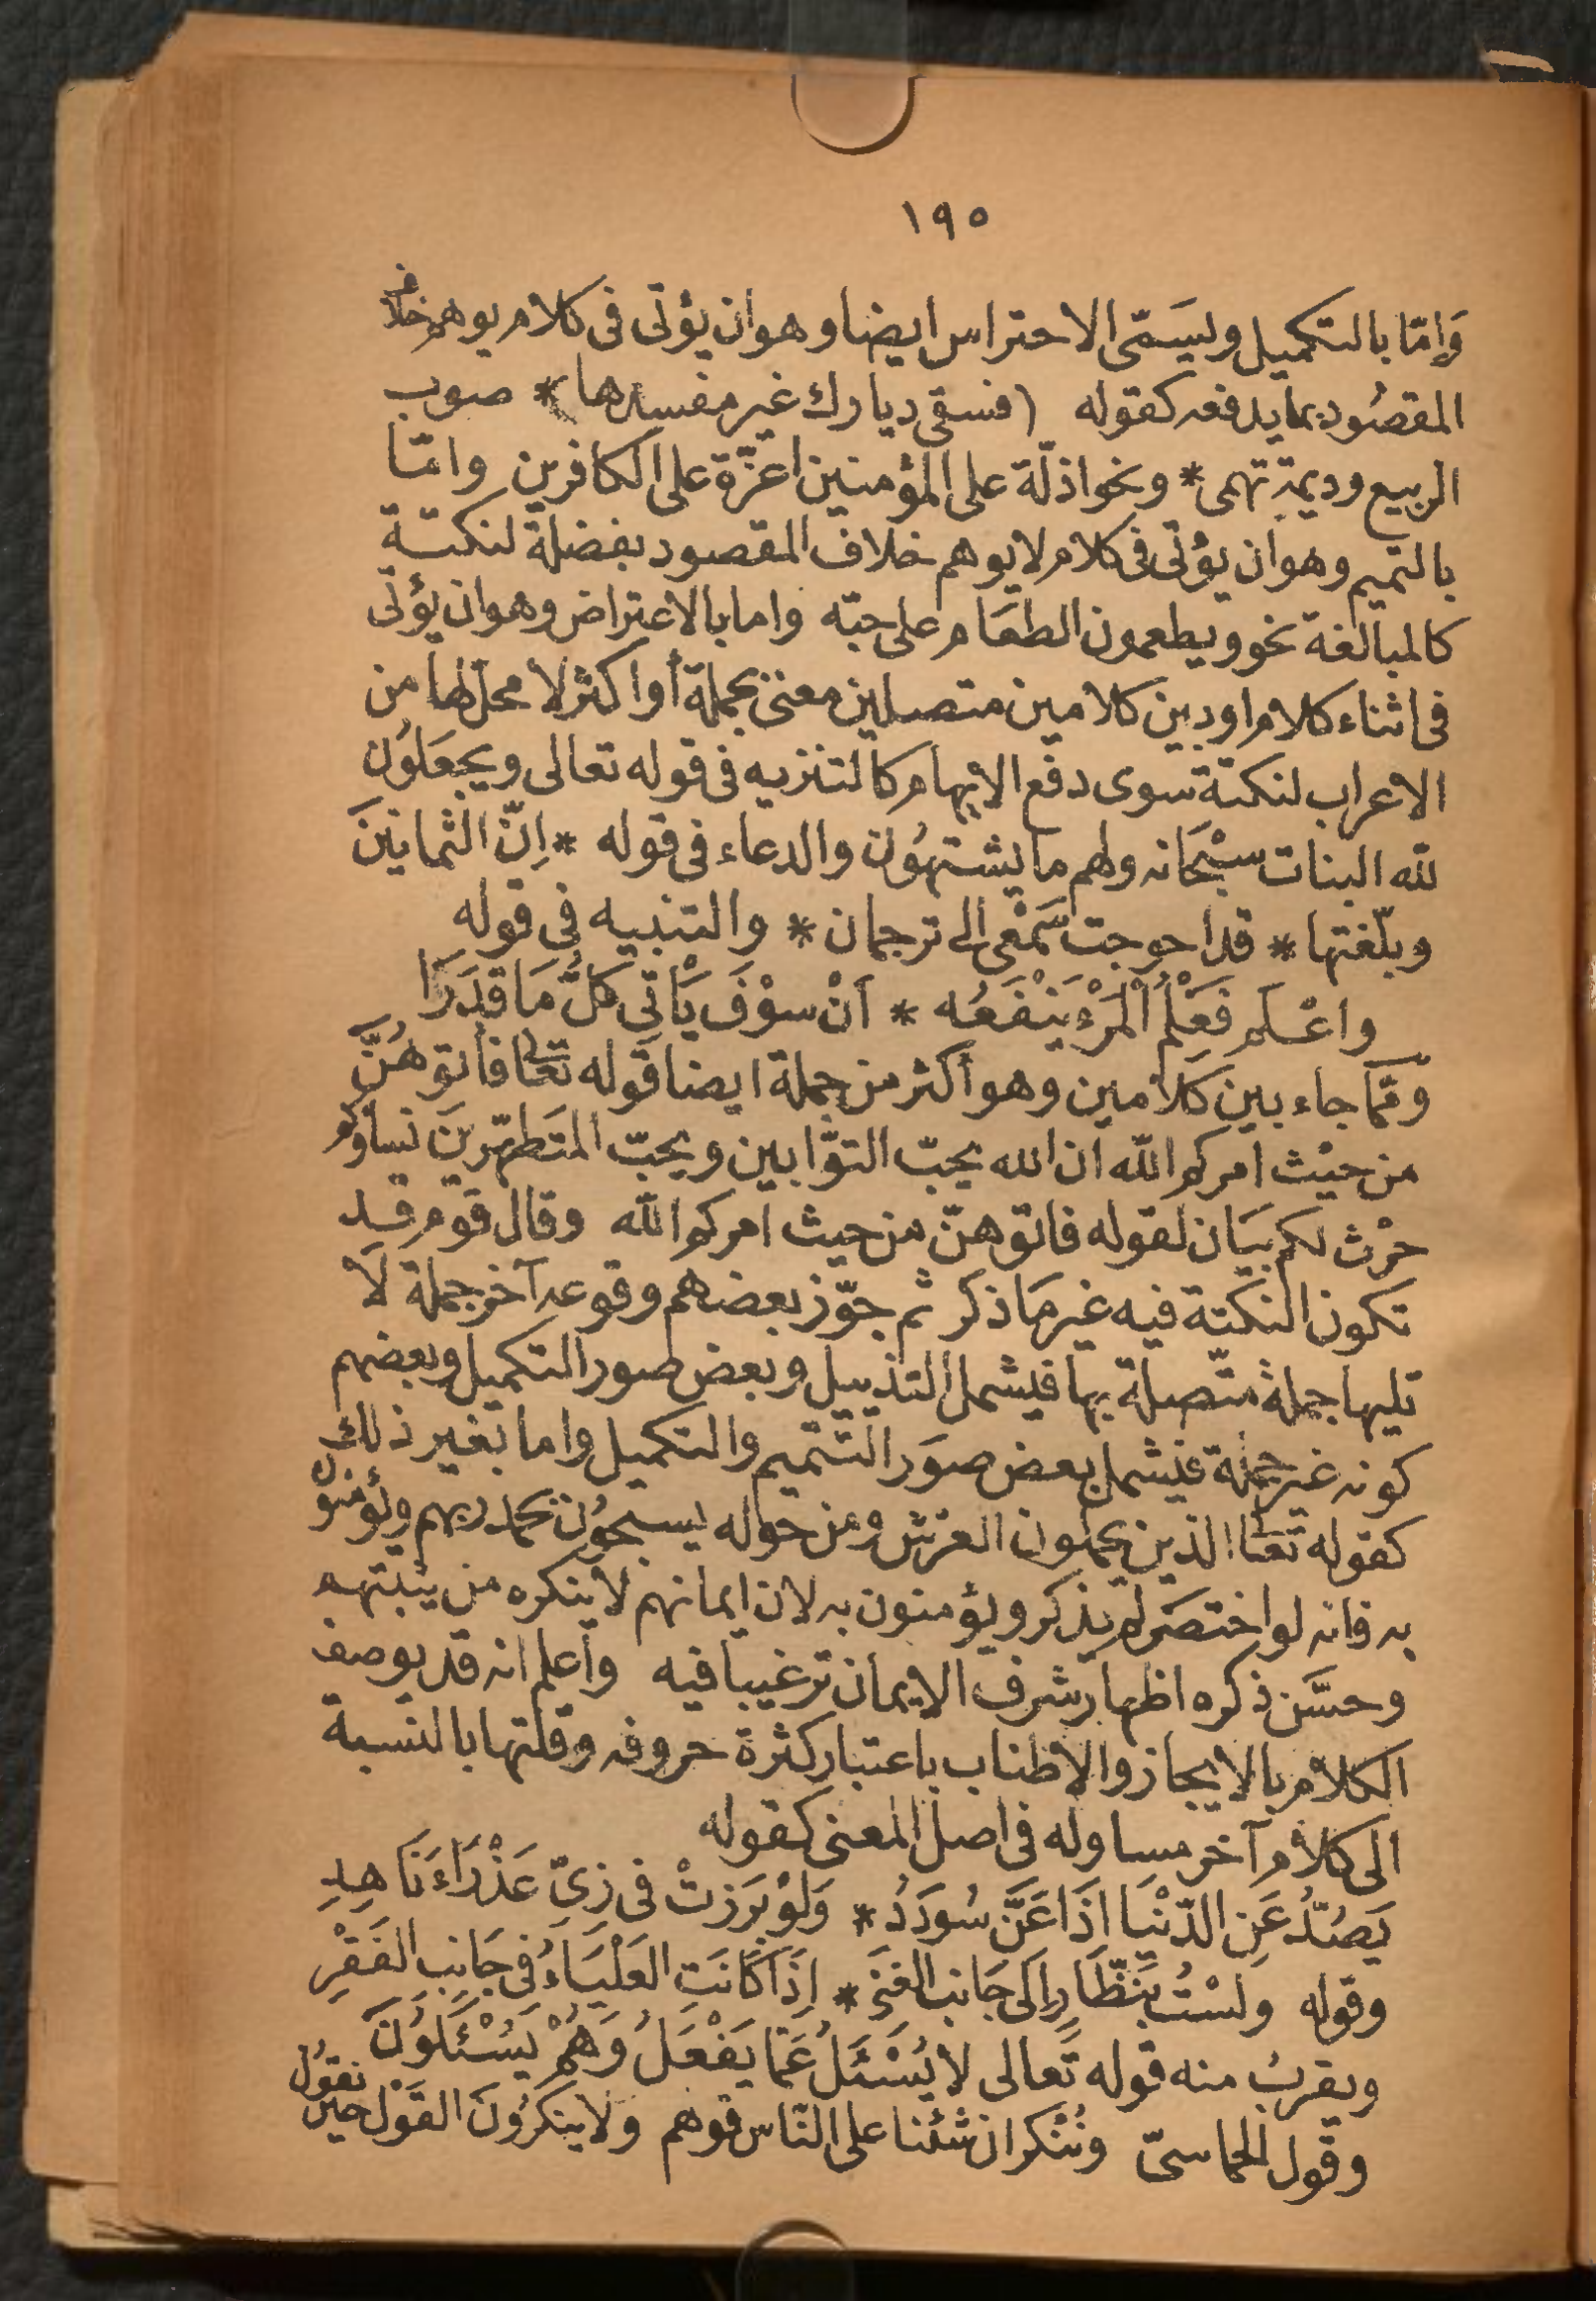 ١٩٥
وَإمّا بالتكميل ويسَمّى الاحتراس ايضا وهو ان يؤتى فى كلام يوهم خلاف
المقصُود بما يدفعه كقوله (فسقى ديارك غير مفسدها * صوب
الربيع وديمة تهمى * ونحو اذلّة على المؤمنين اعزّة على الكافرين وامّا
بالتميم وهو ان يؤتى فى كلام لا يوهم خلاف المقصود بفضلة لنكتة
كالمبالغة نحو ويطعمون الطعَام على حبّه واما بالاعتراض وهو ان يؤتى
فى اثناء كلام او بين كلامين متصلين معنى بجملة أو اكثر لا محل لها من
الاعراب لنكتة سوى دفع الايهام كالتنزيه فى قوله تعالى ويجعَلوُن
لله البنات سبْحَانه ولهم ما يشتهوُن والدعاء فى قوله * اِنّ الثمانينَ
وبلّغتها * قد احوجت سَمْعى الى ترجمان * والتنبيه فى قوله
واعْلم فَعَلْمُ الْمَرْءِ يَنْفَعُه * اَنْ سوْفَ يَأتى كلُّ مَا قدَرَا
وممّا جاء بين كلامين وهو أكثر من جملة ايضا قوله تعالى فأتوهُنَّ
من حيْث امركم الله ان الله يحبّ التوّابين ويحبّ المتَطهّرينَ نساؤكم
حرْث لكم بيَان لقوله فاتوهنّ من حيث امركم الله وقال قوم قد
تكون النكتة فيه غير مَا ذكر ثم جوّز بعضهم وقوعه آخر جملة لاَ
تليها جملة متّصلة بها فيشمل التذييل وبعض صور التكميل وبعضهم
كونه غير جملة فيشمل بعض صوَر التتميم والتكميل واما بغير ذلك
كقوله تعالى الذين يحملون العرش ومن حوله يسبحوُن بحمد ربهم ويؤمنون
به فانه لو اختصَر لم يذكر ويؤمنون به لان ايمانهم لا ينكره من يثبتهم
وحسَّن ذكره اظهار شرف الايمان ترغيبا فيه وأعلم انه قد يوصف
الكلام بالايجاز والاطناب باعتبار كثرة حروفه وقلتها بالنسبة
الى كلام آخر مساو له فى اصل المعنى كقوله
يَصُدُّ عَنِ الدّنْيَا اِذَا عَنَّ سُودَدُ * وَلَوْ بَرَزتْ فى زىّ عَذْرَاءَ نَاهِدِ
وقوله ولسْتُ بنَظّارٍ اِلى جَانب الغنَى * اِذَا كَانَتِ العَلْيَاءُ فى جَانِب الفَقْرِ
ويقربُ منه قوله تَعالى لا يُسْئَلُ عَمّا يَفْعَلُ وَهُمْ يَسُئَلوُنَ
وقول الحماسىّ ونُنْكر ان شئنا على النّاس قوهم ولا ينكرُونَ القَوْل حين نقوُل